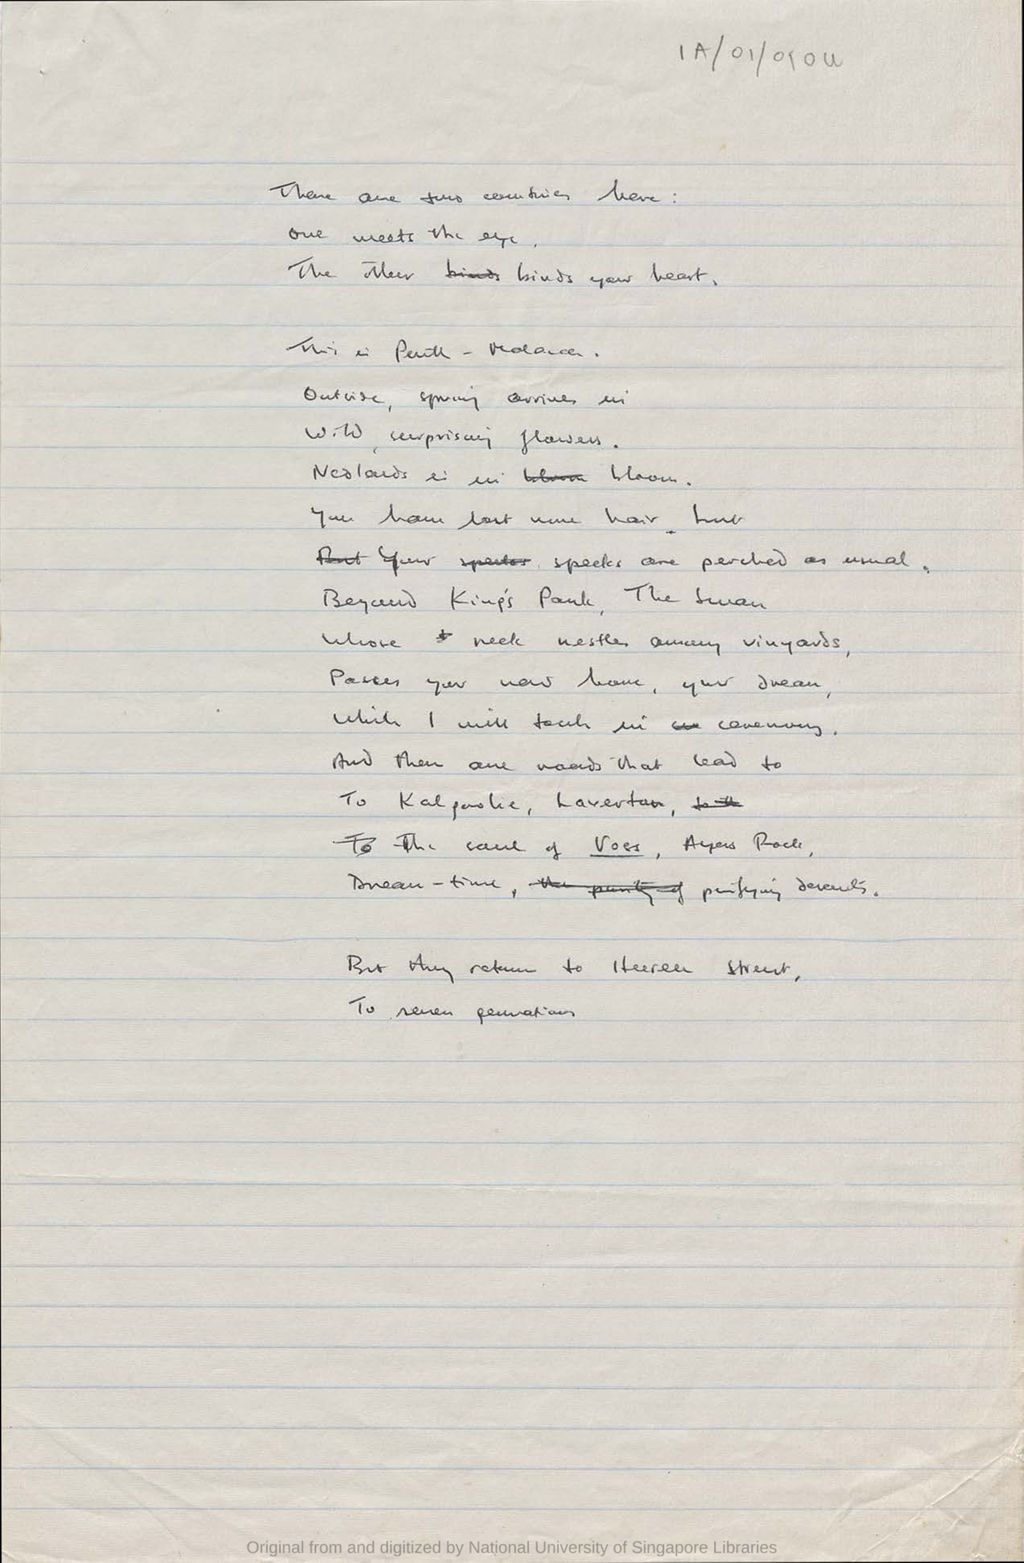 There are two countries here:
One meets the eye,
The other binds binds your heart.
This is Perth - Malacca.
Outside, spring arrives in
Wild, surprising flowers.
Nedlands is in bloom bloom.
You have lost more hair, but
But Your specks are perched as usual.
Beyond King's Park, The Swan
Whose neck nestles among vinyards,
Passes your new home, your dream,
Which I will touch in ceremony.
And then are roads that lead to
To Kalgoolie, Laverton, to the
To The sand of Voss, Ayers Rock,
Dream-time, the purity of purifying deserts.
But they return to Heeren Street,
To seven generations
Original from and digitized by National University of Singapore Libraries